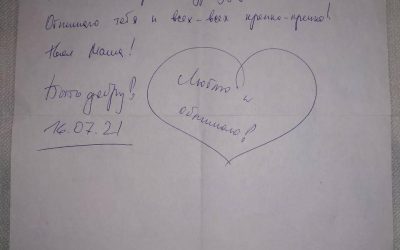 Обнимаю тебя и всех-всех крепко-крепко!
Маша!
Быть добру!
16.07.21
Люблю и
обнимаю!